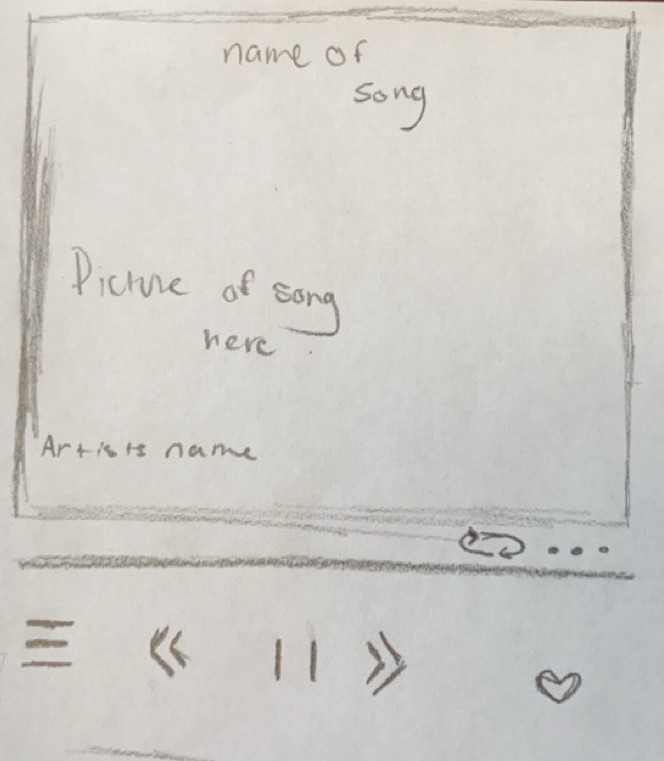 name of
song
Picture of song
here
Artists name